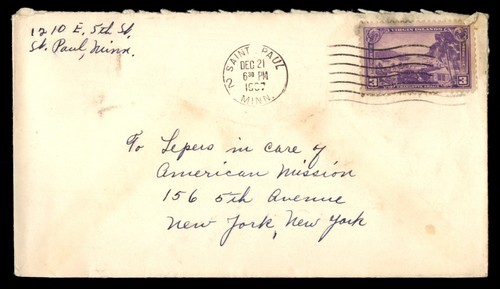 1210 E. 5th St.
St. Paul, Minn.
2 SAINT PAUL
DEC 21
6 30 PM
1937
MINN.
VIRGIN ISLANDS
3 3
To Lepers in care of
American Mission
156 5th Avenue
New York, New York